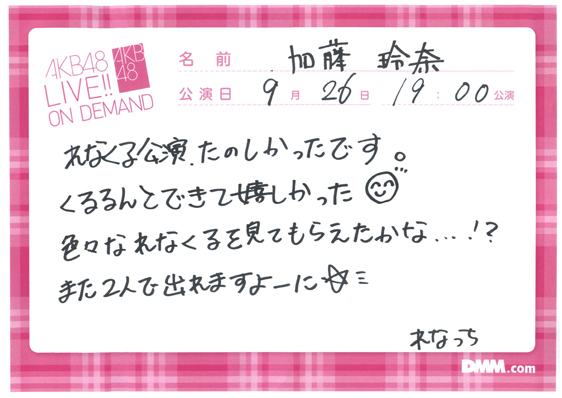 AKB48
LIVE!!
ON DEMAND
AKB
48
名前 加藤 玲奈
公演日 9月 26日 19:00公演
れなくる公演、たのしかったです。
くるるんとできて嬉しかった
色々なれなくるを見てもらえたかな...!?
また2人で出れますよーに☆ミ
れなっち
DMM.com